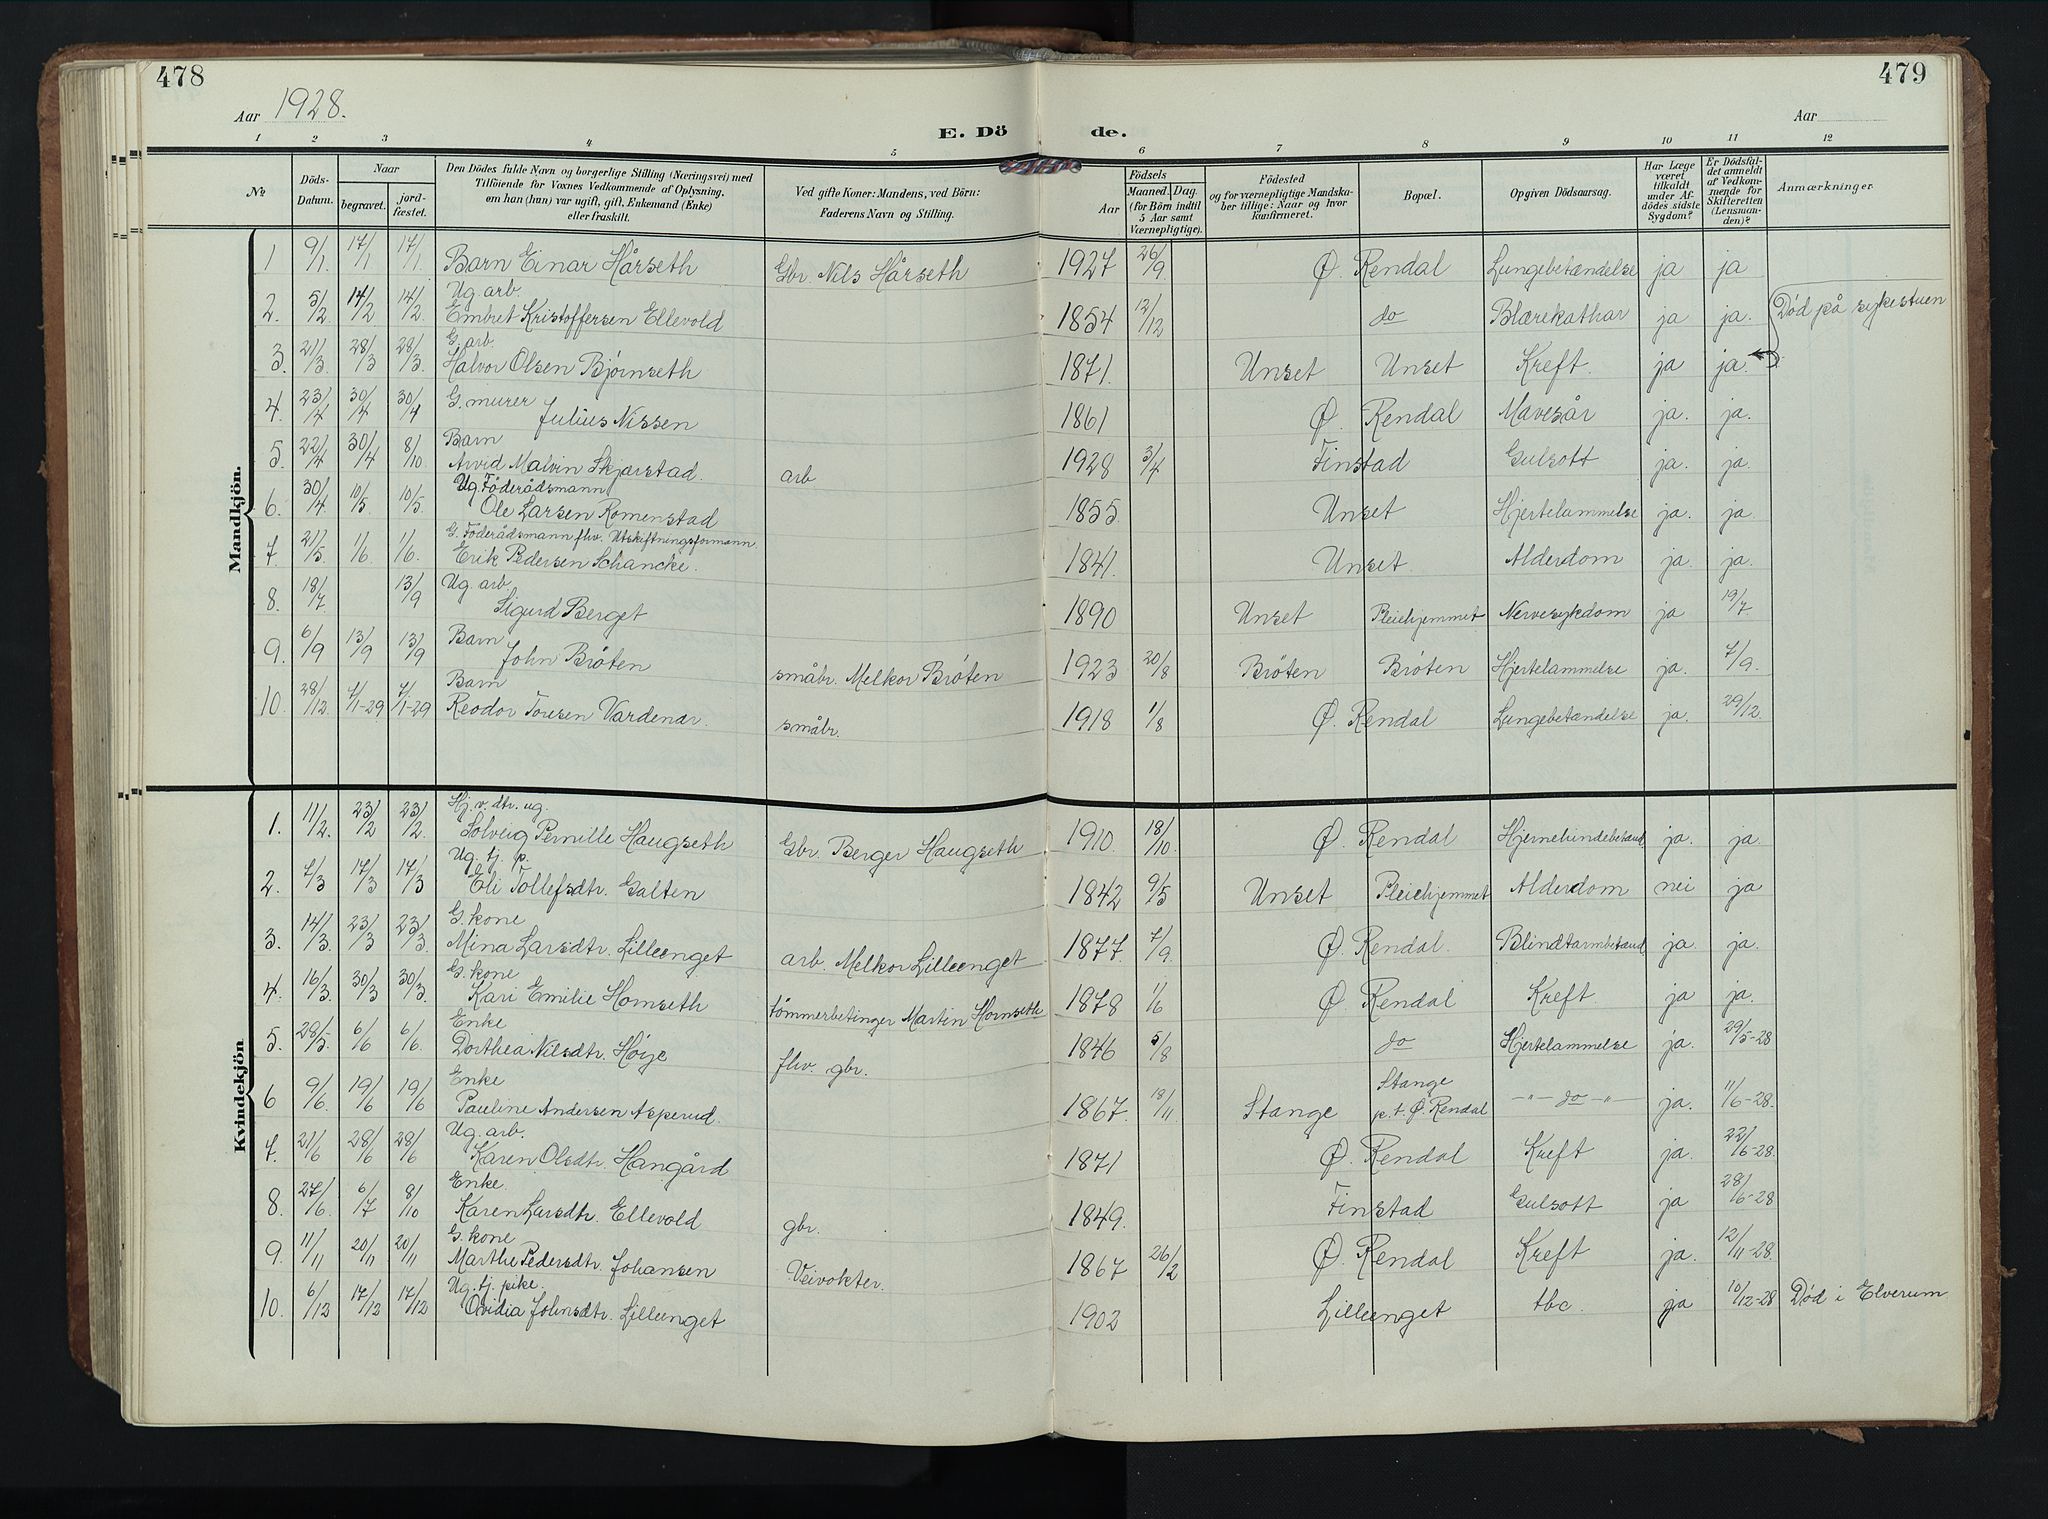 478
479
Aar 1928.
Aar
E. Dö de.
1 2 3 4 5 6 7 8 9 10 11 12
No
Döds-Datum.
Naar
begravet.
jord-fæstet.
Den Dödes fulde Navn og borgerlige Stilling (Næringsvei) med
Tilföiende for Voxnes Vedkommende af Oplysning,
om han (hun) var ugift, gift, Enkemand (Enke)
eller fraskilt.
Ved gifte Koner: Mandens, ved Börn:
Faderens Navn og Stilling.
Födsels
Aar
Maaned. Dag.
(for Börn indtil
5 Aar samt
Værnepligtige).
Födested
og for værnepligtige Mandska-
ber tillige: Naar og hvor
konfirmeret.
Bopæl.
Opgiven Dödsaarsag.
Har Læge
været
tilkaldt
under Af-
dödes sidste
Sygdom?
Er Dödsfal-
det anmeldt
af Vedkom-
mende for
Skifteretten
(Lensman-
den)?
Anmærkninger
Mandkjön.
1 9/1 17/1 17/1 Barn Einar Hårseth Gbr. Nils Hårseth 1927 26/9 Ø. Rendal Lungebetændelse ja ja
2. 5/2 14/2 14/2 Ug. arb.
Embret Kristoffersen Ellevold 1854 12/12 do Blærekathar ja ja. Død på sykestuen
3. 21/3 28/3 28/3 G. arb.
Halvor Olsen Bjørnseth 1871. Unset Unset Kreft. ja ja.
4. 23/4 30/4 30/4 G. murer
Julius Nissen 1861 Ø. Rendal Mavesår ja. ja.
5. 22/4 30/4 8/10 Barn
Arvid Malvin Skjærstad. arb 1928 3/4 Finstad Gulsott ja. ja.
6. 30/4 10/5 10/5 Ug. Föderådsmann
Ole Larsen Romenstad 1855. Unset Hjertelammelse ja. ja.
7 21/5. 1/6 1/6. G. Föderådsmann flv. Utskiftningsformann.
Erik Pedersen Schancke. 1841. Unset. Alderdom ja. ja.
8. 18/7. 13/9 Ug. arb.
Sigurd Berget 1890 Unset Pleiehjemmet Nervesykdom ja 19/7
9. 6/9 13/9 13/9 Barn
John Bröten småbr. Melkor Bröten 1923 20/8 Bröten Bröten Hjertelammelse ja. 7/9.
10. 28/12. 4/1-29 7/1-29 Barn
Reodor Toresen Vardenær. småbr. 1918 1/8 Ø. Rendal Lungebetændelse ja. 29/12.
Kvindekjön
1. 11/2. 23/2 23/2. Hj. v. dtr. ug.
Solveig Pernille Haugseth Gbr. Berger Haugseth 1910. 18/10. Ø. Rendal Hjernehindebetænd ja. ja.
2. 7/3 17/3 17/3 Ug. tj. p.
Eli Tollefsdtr. Galten 1842 9/5 Unset Pleiehjemmet Alderdom nei ja
3. 14/3. 23/3 23/3. G. kone
Mina Larsdtr. Lilleenget arb. Melkor Lilleenget 1877. 7/9. Ø. Rendal. Blindtarmbetænd ja. ja.
4. 16/3. 30/3 30/3. G. kone
Kari Emilie Hornseth tömmerbetinger Martin Hornseth 1878 1/6 Ø. Rendal Kreft. ja ja.
5. 28/5. 6/6 6/6. Enke
Dorthea Nilsdtr. Høye flv. gbr. 1846 5/8 do Hjertelammelse ja. 29/5-28
6 9/6. 19/6 19/6 Enke
Pauline Andersen Asperud. 1867. 18/11 Stange Stange
p. t. Ø. Rendal -"- do -"- ja. 11/6-28.
7. 21/6 28/6 28/6 Ug. arb.
Karen Olsdtr. Hangård 1871 Ø. Rendal Kreft ja. 22/6-28.
8. 27/6. 6/7 8/10 Enke.
Karen Larsdtr. Ellevold gbr. 1849. Finstad Gulsott ja 28/6-28
9. 11/11 20/11 20/11 G. kone
Marthe Pedersdtr. Johansen Veivokter. 1867 26/2 Ø. Rendal Kreft ja. 12/11-28.
10. 6/12 17/12 17/12 Ug. tj. pike.
Ovidia Johnsdtr. Lilleenget 1902 Lilleenget tbc. ja 10/12-28 Död i Elverum